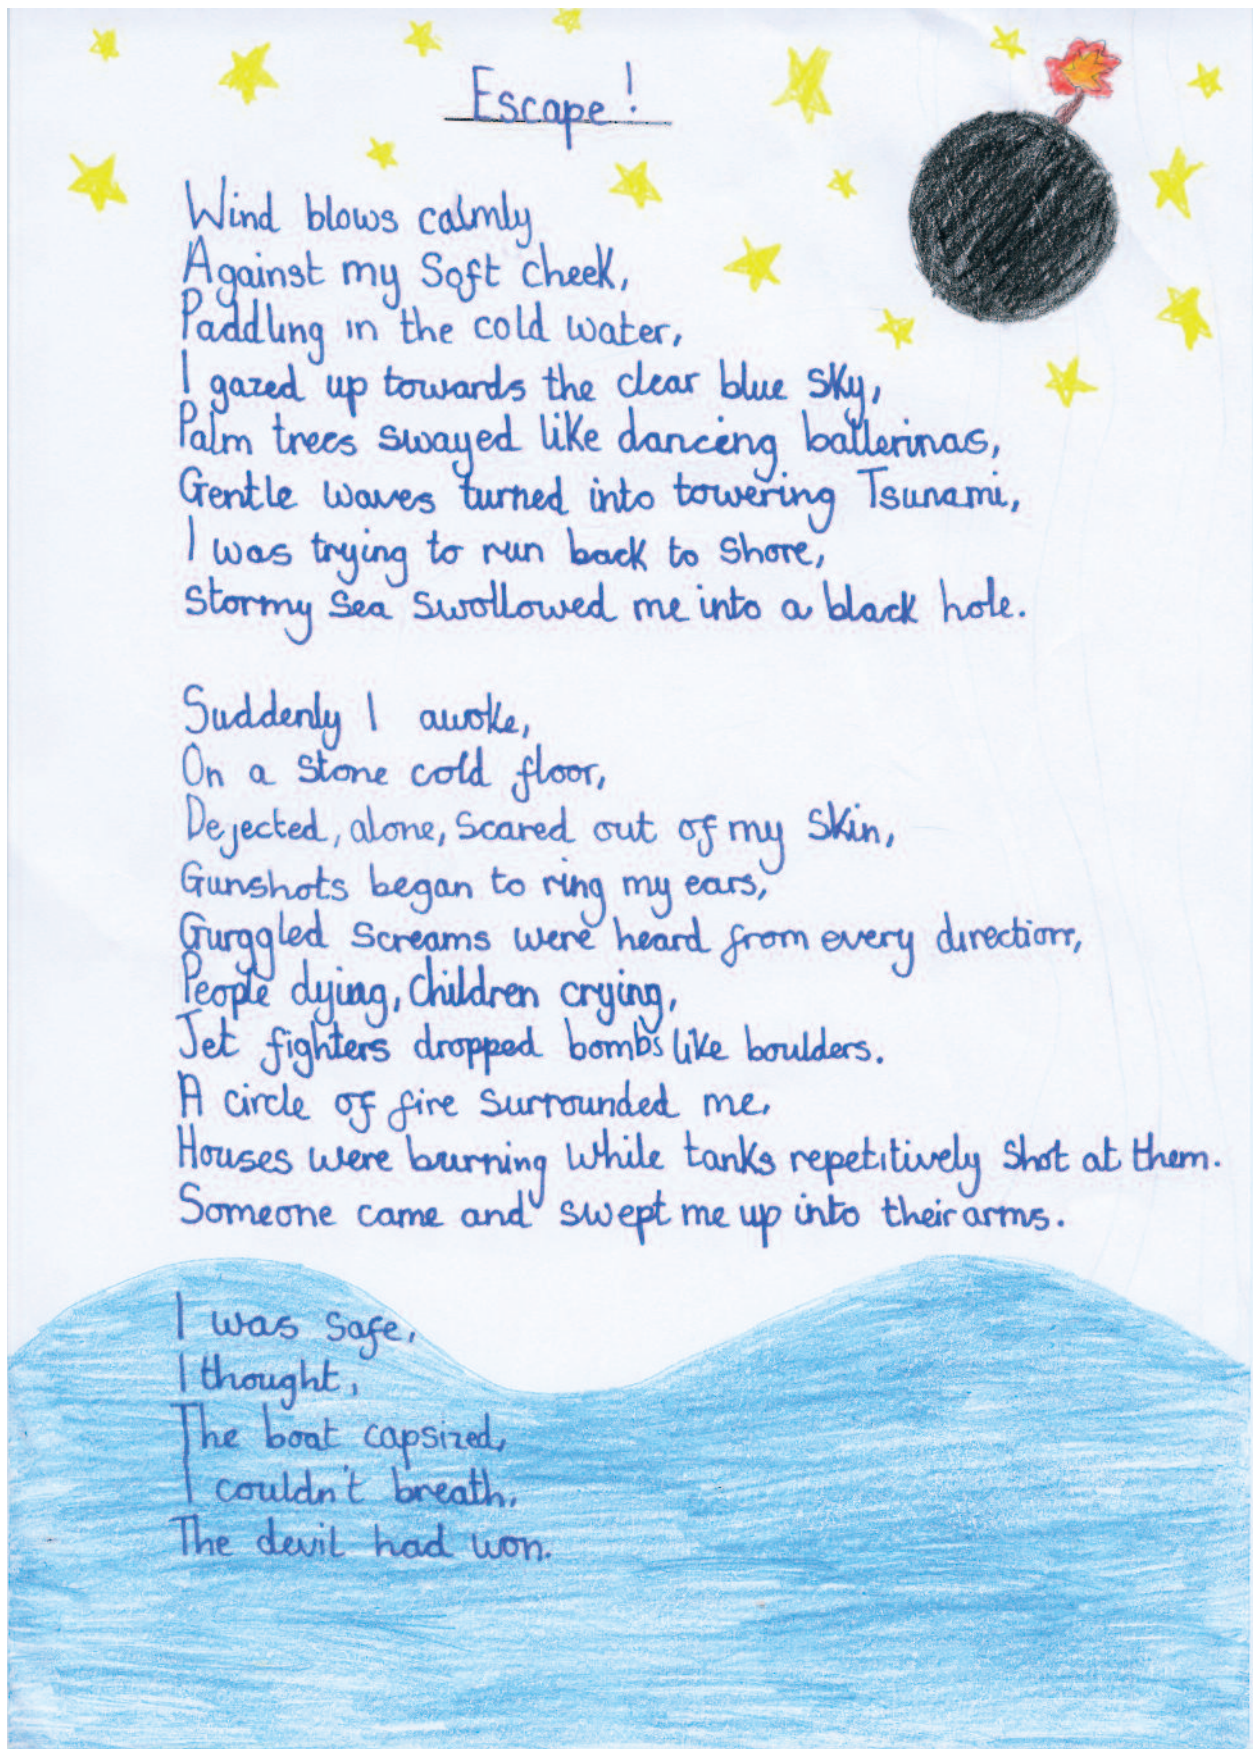 Escape!
Wind blows calmly
Against my Soft cheek,
Paddling in the cold water,
I gazed up towards the clear blue sky,
Palm trees swayed like dancing ballerinas,
Gentle waves turned into towering Tsunami,
I was trying to run back to shore,
Stormy sea swollowed me into a black hole.
Suddenly I awoke,
On a stone cold floor,
Dejected, alone, scared out of my skin,
Gunshots began to ring my ears,
Gurggled screams were heard from every direction,
People dying, children crying,
Jet fighters dropped bombs like boulders.
A circle of fire surrounded me,
Houses were burning while tanks repetitively shot at them.
Someone came and swept me up into their arms.
I was safe,
I thought,
The boat capsized,
I couldn't breath,
The devil had won.